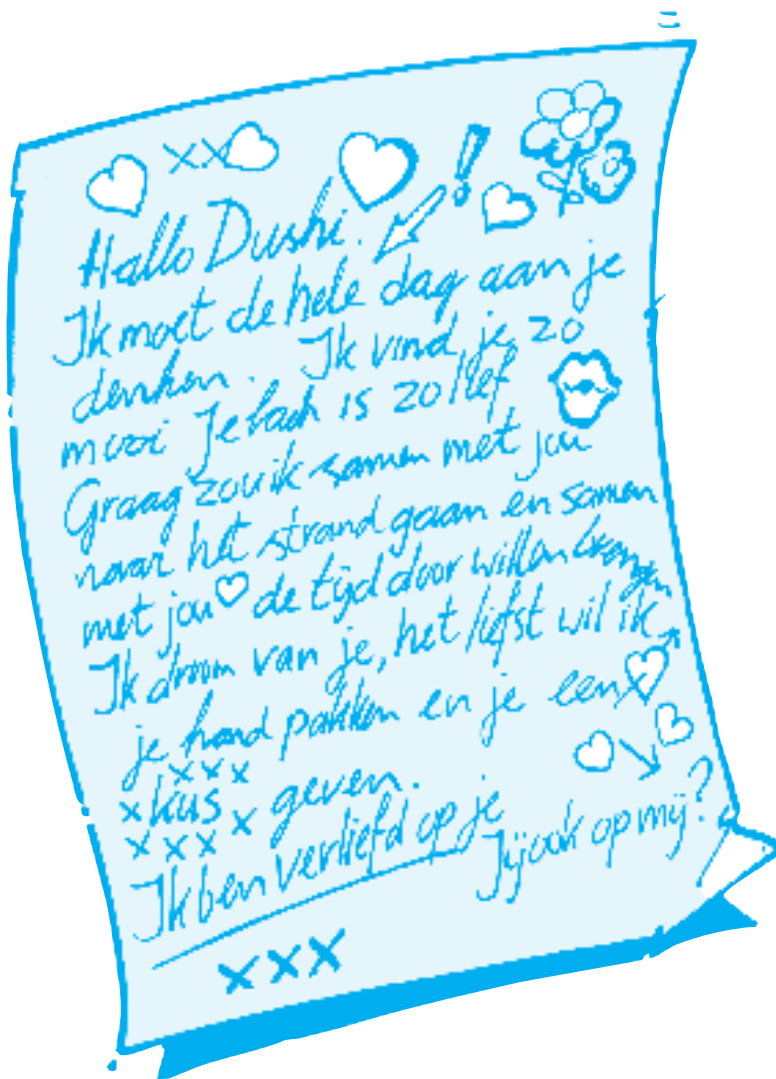 xx
!
Hallo Dushi.
Ik moet de hele dag aan je
denken. Ik vind je zo
mooi Je lach is zo lief
Graag zou ik samen met jou
naar het strand gaan en samen
met jou de tijd door willen brengen
Ik droom van je, het liefst wil ik
je hand pakken en je een
xxx
x kus x geven.
xxx
Ik ben verliefd op je Jij ook op mij?
xxx